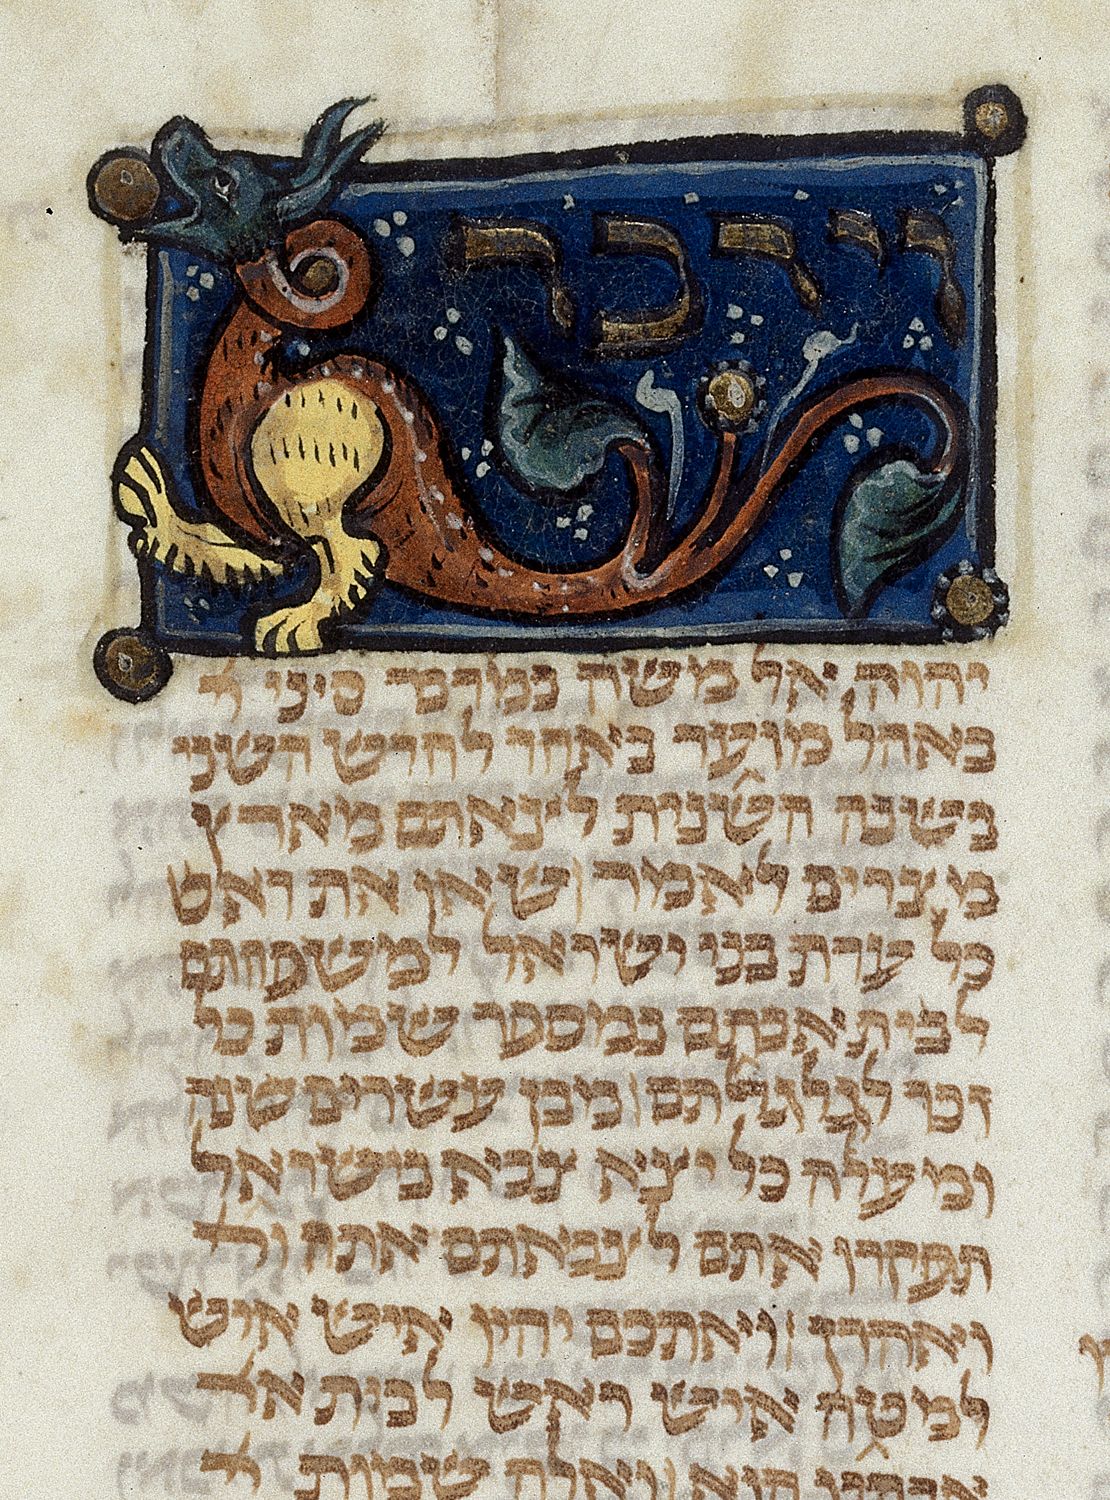 וידבר
יהוה אל משה במדבר סיני
באהל מועד באחד לחדש השני
בשנה השנית לצאתם מארץ
מצרים לאמר שאו את ראש
כל עדת בני ישראל למשפחתם
לבית אבתם במספר שמות כל
זכר לגלגלתם מבן עשרים שנה
ומעלה כל יצא צבא בישראל
תפקדו אתם לצבאתם אתה
ואהרן ואתכם יהיו איש איש
למטה איש ראש לבית
אבתיו הוא ואלה שמות